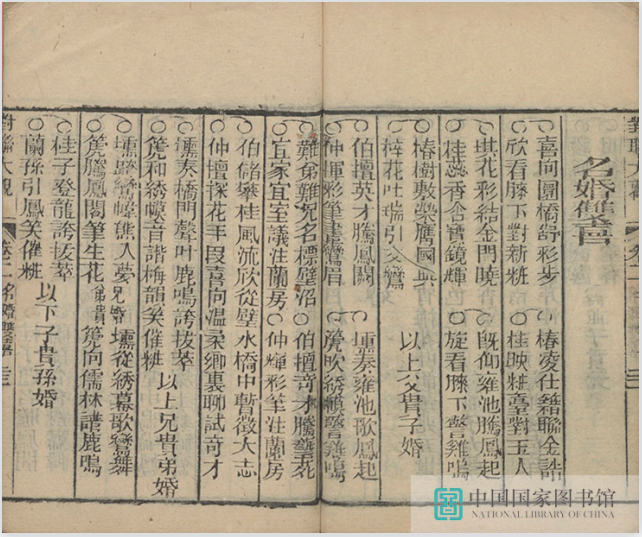 名婚雙
喜向圜橋舒彩步 椿凌仕籍聯金誥
欣看膝下對新粧 桂映粧臺對玉人
琪花彩結金門曉 既仰雍池騰鳳起
桂蕊香含寶鏡輝 旋看膝下警雞鳴
椿樹敷榮膺國典 以上父貴子婚
梓花吐瑞引文鸞
伯擅英才騰鳳閣 壎奏雍池歌鳳起
仲揮彩筆畫鸞眉 篪吹綉幙警雞鳴
難弟難兄名標璧沼 伯擅奇才騰璧苑
宜家宜室議注蘭房 仲輝彩筆注蘭房
伯儲攀桂風流欣從壁水橋中暫徵大志
仲擅探花手段喜向溫柔鄉裏聊試奇才
壎奏橋門聲叶鹿鳴誇拔萃
篪和綉幙音諧梅韻笑催粧 以上兄貴弟婚
壎綉入夢 兄婚 壎從綉幕歌鸞舞
篪騰鳳閣筆生花 弟貴 篪向儒林譜鹿鳴
桂子登龍誇拔萃
蘭孫引鳳笑催粧 以下子貴孫婚
對聯大觀 卷二 名婚雙
中国国家图书馆
NATIONAL LIBRARY OF CHINA